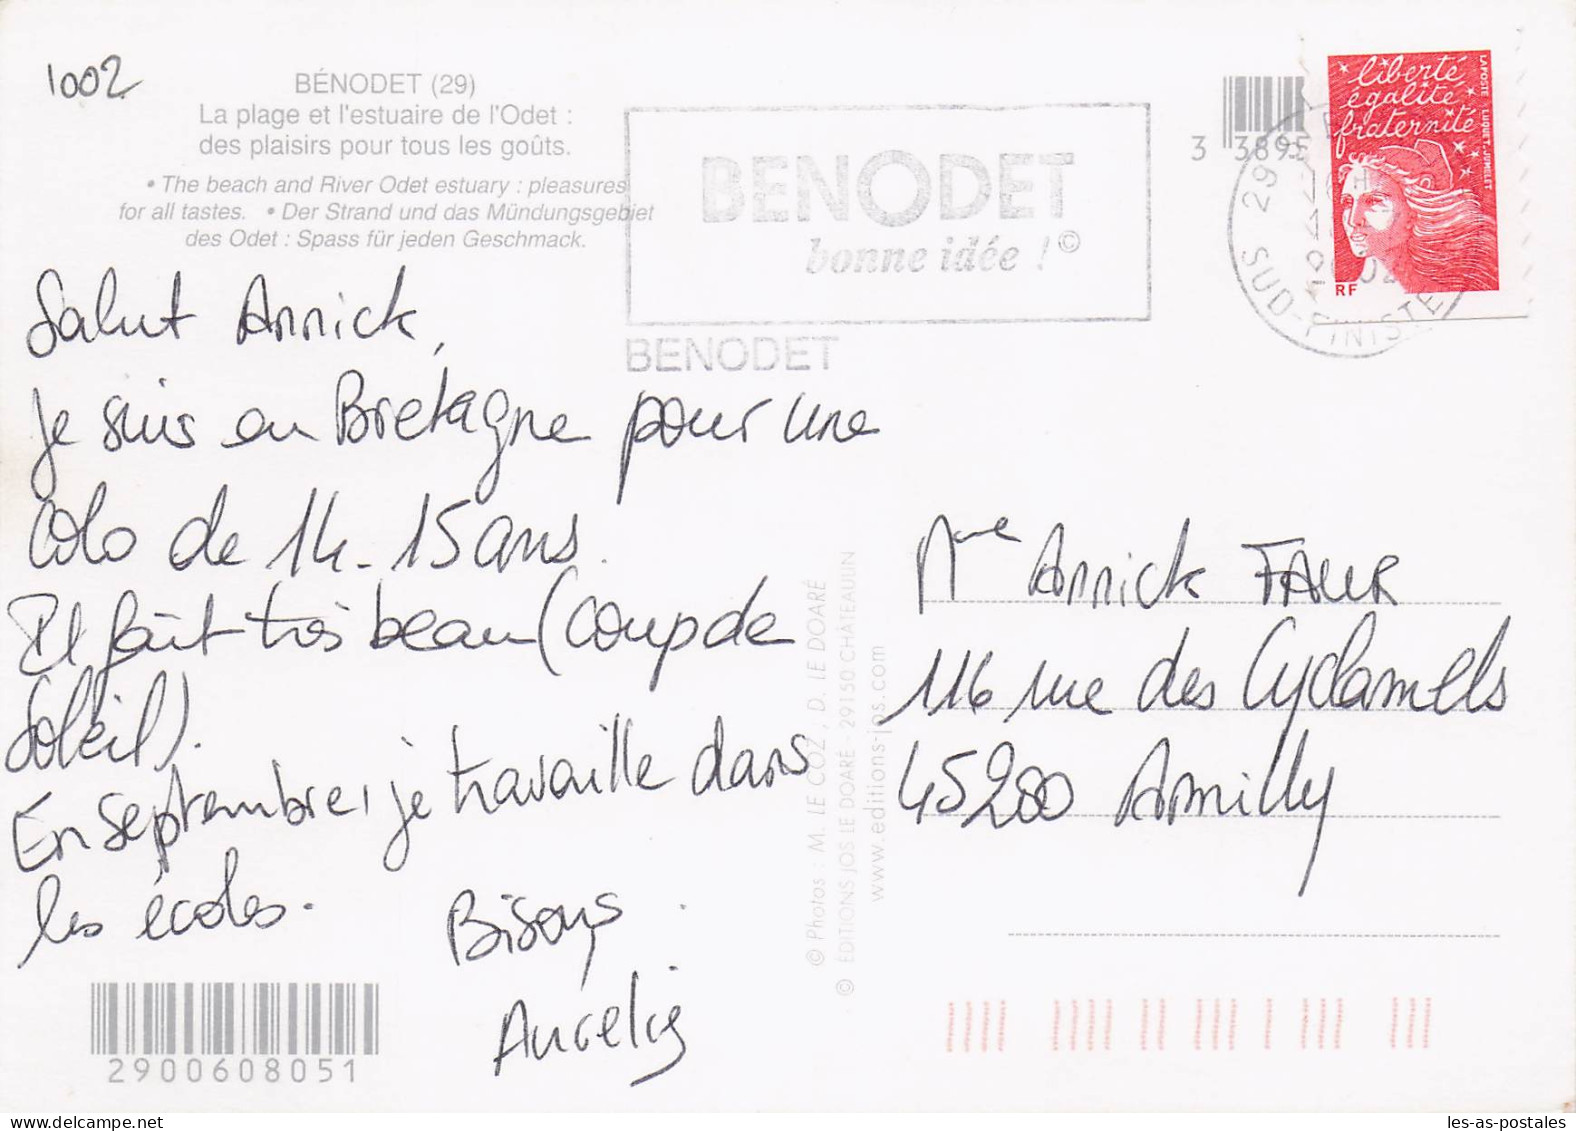 1002
BÉNODET (29)
La plage et l'estuaire de l'Odet :
des plaisirs pour tous les goûts.
• The beach and River Odet estuary : pleasures
for all tastes. • Der Strand und das Mündungsgebiet
des Odet : Spass für jeden Geschmack.
BENODET
bonne idée ! ©
BENODET
3 3895
29
SUD-FINISTE
liberté
égalité
fraternité
LAPOSTE LUQUET-JUMELET
RF
Salut Annick,
Je suis en Bretagne pour une
colo de 14-15 ans.
Il fait très beau (coup de
soleil).
En septembre, je travaille dans
les écoles.
Bisous
Aurélie
© Photos : M. LE COZ, D. LE DOARÉ
© ÉDITIONS JOS LE DOARÉ - 29150 CHÂTEAULIN
www.editions-jos.com
Mme Annick FAUR
116 rue des Cyclamells
45200 Amilly
2900608051
les-as-postales